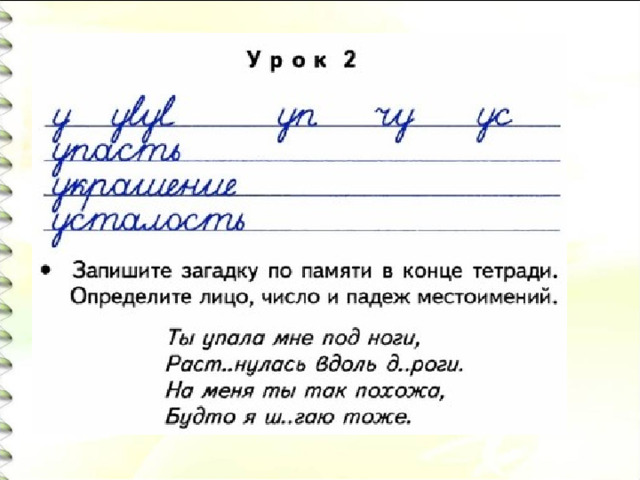 Урок 2
у уlуl уп чу ус
упасть
украшение
усталость
• Запишите загадку по памяти в конце тетради.
Определите лицо, число и падеж местоимений.
Ты упала мне под ноги,
Раст..нулась вдоль д..роги.
На меня ты так похожа,
Будто я ш..гаю тоже.